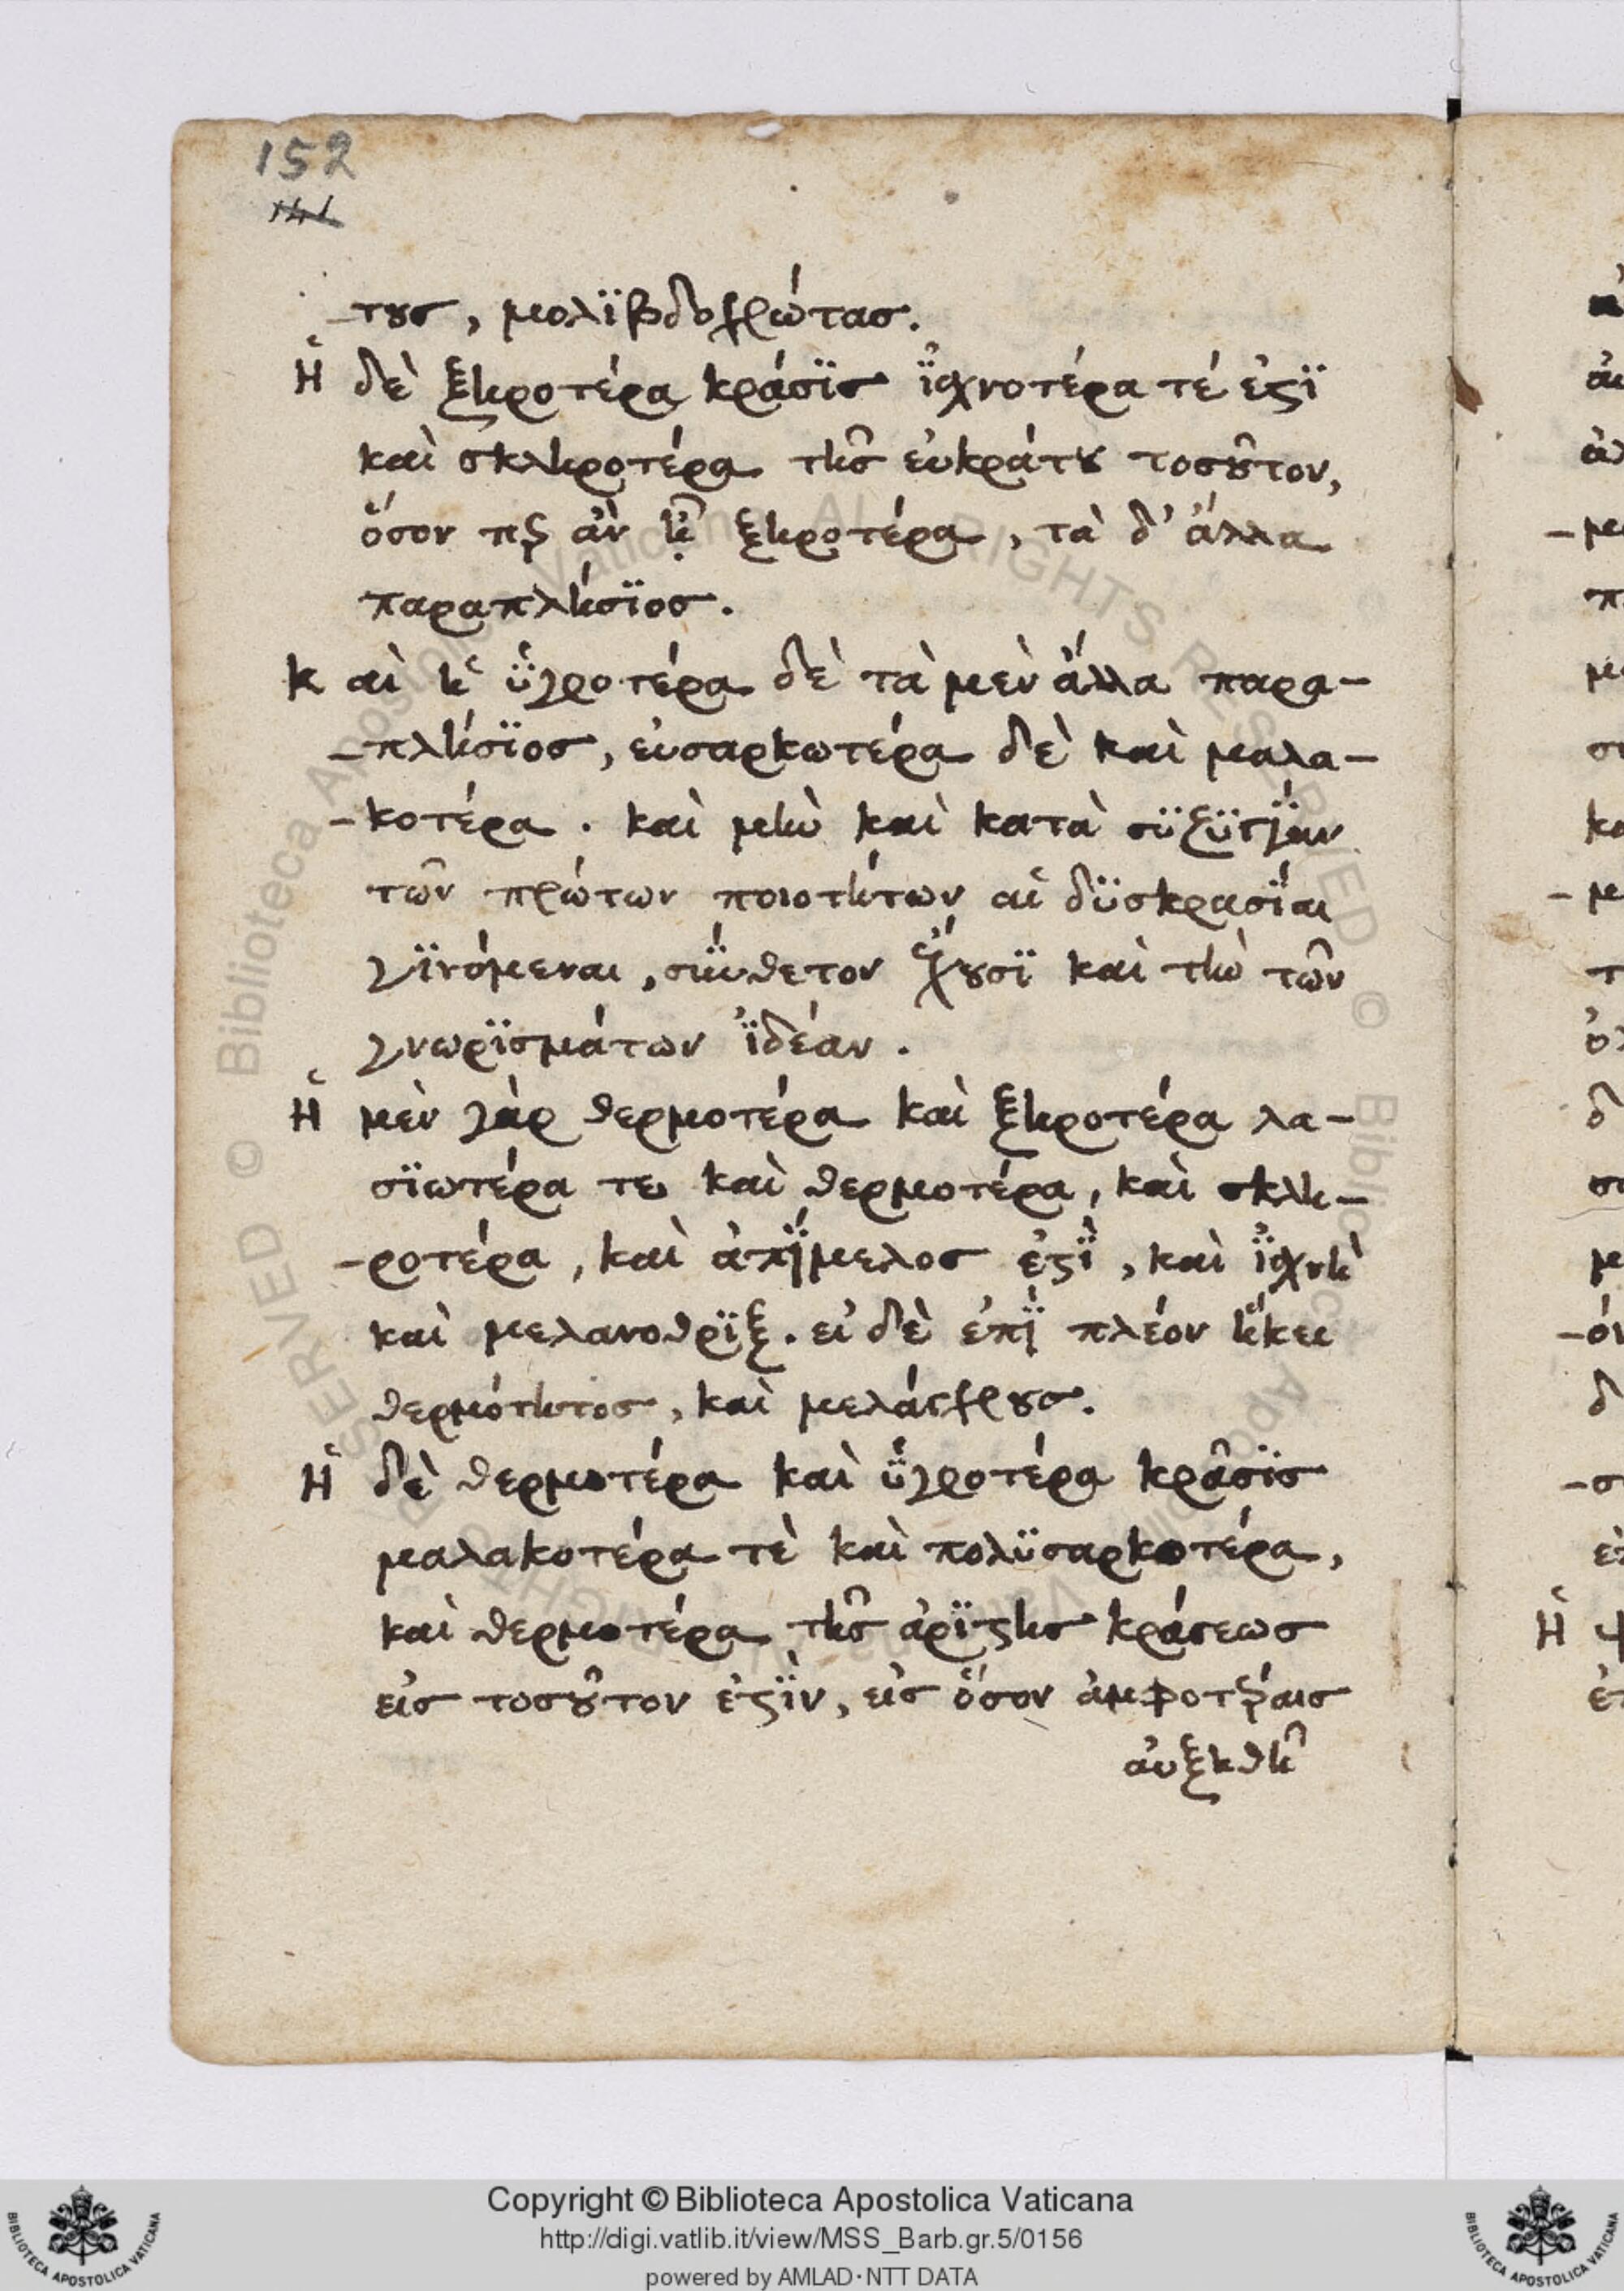 152
141
-τους, μολϊβδοχρώτας.
Ἡ δὲ ξηροτέρα κράσϊς ϊσχνοτέρα τέ ἐστϊ
καὶ σκληροτέρα τῆς εὐκράτου τοσοῦτον,
ὅσον περ ἂν ᾖ ξηροτέρα, τὰ δ' ἄλλα
παραπλήσϊος.
Καὶ ἡ ὑγροτέρα δὲ τὰ μὲν ἄλλα παρα-
-πλήσϊος, εὐσαρκωτέρα δὲ καὶ μαλα-
-κοτέρα. καὶ μὴν καὶ κατὰ συζυγίαν
τῶν πρώτων ποιοτήτων αἱ δϋσκρασίαι
γϊνόμεναι, σύνθετον ἔχουσϊ καὶ τὴν τῶν
γνωρϊσμάτων ἰδέαν.
Ἡ μὲν γὰρ θερμοτέρα καὶ ξηροτέρα λα-
σϊωτέρα τε καὶ θερμοτέρα, καὶ σκλη-
-ροτέρα, καὶ ἀπίμελος ἐστὶ, καὶ ἰσχνὴ
καὶ μελανοθρϊξ. εἰ δὲ ἐπὶ πλέον ἥκει
θερμότητος, καὶ μελάγχρους.
Ἡ δὲ θερμοτέρα καὶ ὑγροτέρα κρᾶσϊς
μαλακοτέρα τὲ καὶ πολϋσαρκοτέρα,
καὶ θερμοτέρα τῆς ἀρϊστης κράσεως
εἰς τοσοῦτον ἐστὶν, εἰς ὅσον ἀμφοτέραις
αὐξηθῆ
Copyright © Biblioteca Apostolica Vaticana
http://digi.vatlib.it/view/MSS_Barb.gr.5/0156
powered by AMLAD·NTT DATA